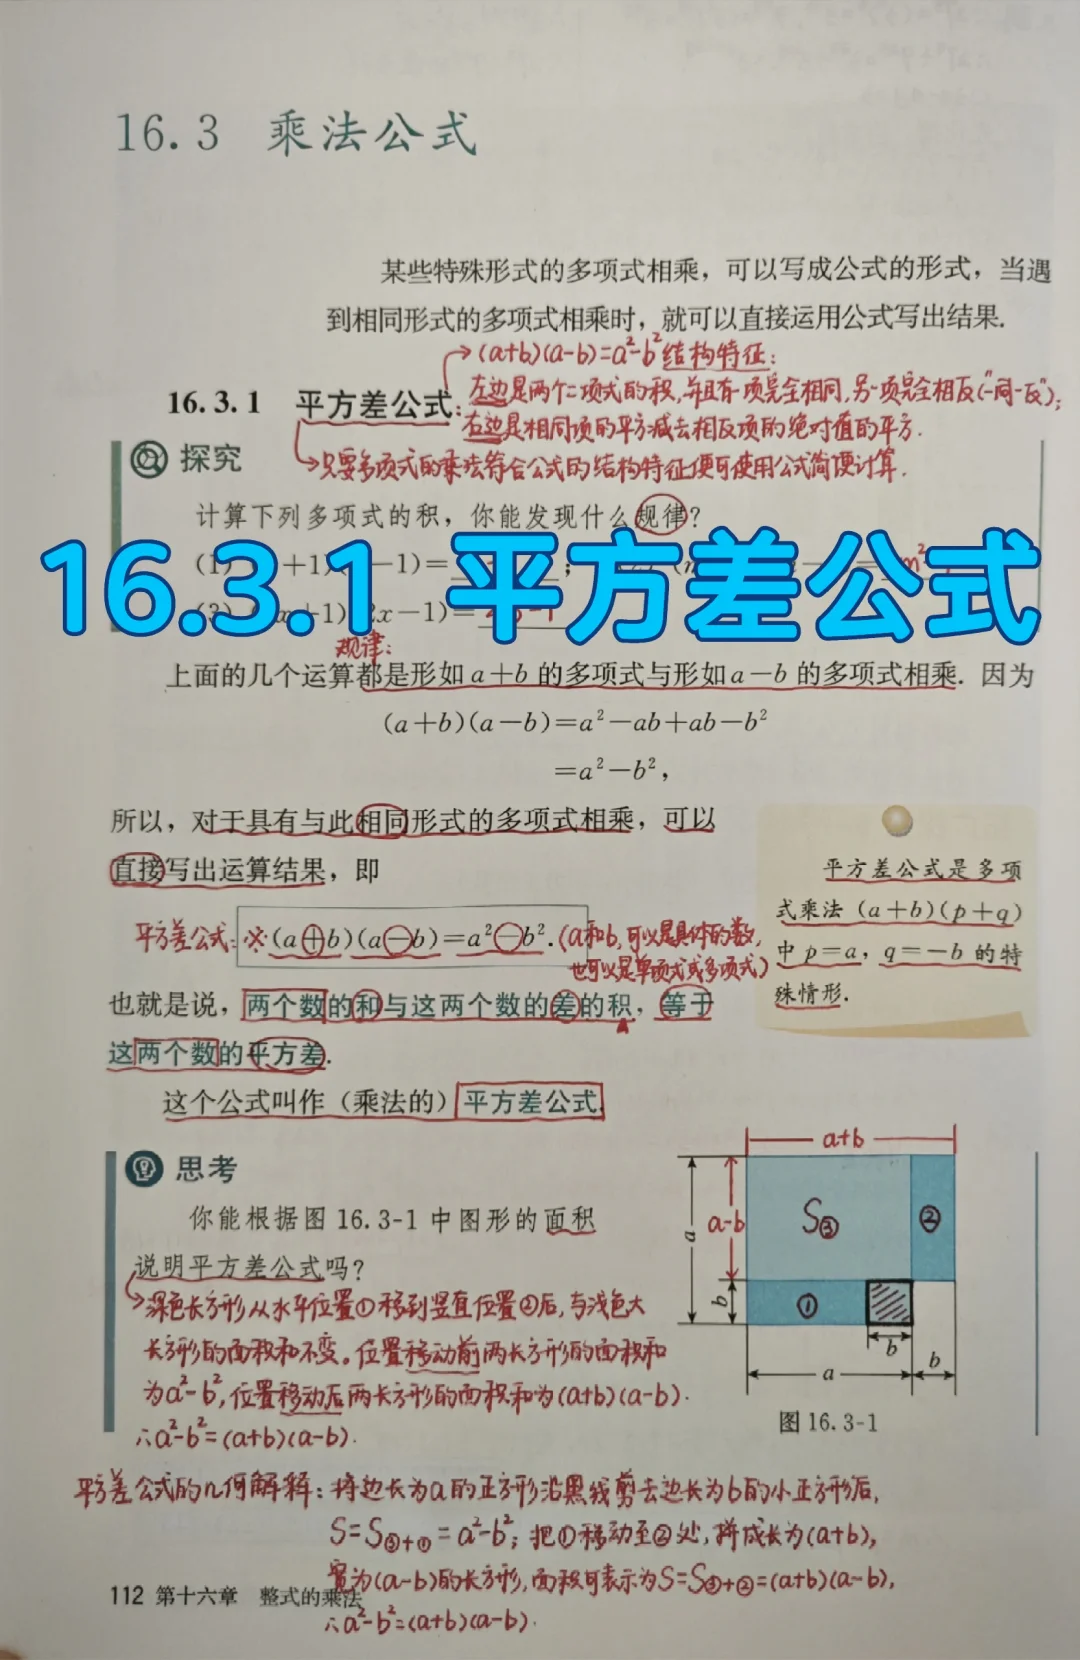 16.3 乘法公式
某些特殊形式的多项式相乘，可以写成公式的形式，当遇
到相同形式的多项式相乘时，就可以直接运用公式写出结果.
(a+b)(a-b)=a²-b²结构特征：
16.3.1 平方差公式：左边是两个二项式的积，并且有一项完全相同，另一项完全相反(“一同一反”)；
右边是相同项的平方减去相反项的绝对值的平方.
探究
只要多项式的乘法符合公式的结构特征便可使用公式简便计算.
计算下列多项式的积，你能发现什么规律？
16.3.1 平方差公式
规律：
上面的几个运算都是形如 a+b 的多项式与形如 a-b 的多项式相乘. 因为
(a+b)(a-b)=a²-ab+ab-b²
=a²-b²，
所以，对于具有与此相同形式的多项式相乘，可以
直接写出运算结果，即
平方差公式：※(a+b)(a-b)=a²-b².(a和b，可以是具体的数，
也可以是单项式或多项式)
也就是说，两个数的和与这两个数的差的积，等于
这两个数的平方差.
这个公式叫作（乘法的）平方差公式.
平方差公式是多项
式乘法 (a+b)(p+q)
中 p=a，q=-b 的特
殊情形.
思考
你能根据图 16.3-1 中图形的面积
说明平方差公式吗？
深色长方形从水平位置①移到竖直位置②后，与浅色大
长方形的面积和不变。位置移动前两长方形的面积和
为a²-b²，位置移动后两长方形的面积和为(a+b)(a-b).
∴a²-b²=(a+b)(a-b).
a+b
a
a-b
S③
②
b
①
b
a
b
图 16.3-1
平方差公式的几何解释：将边长为a的正方形沿黑线剪去边长为b的小正方形后，
S=S③+①=a²-b²；把①移动至②处，拼成长为(a+b)，
宽为(a-b)的长方形，面积可表示为S=S③+②=(a+b)(a-b)，
∴a²-b²=(a+b)(a-b).
112 第十六章 整式的乘法